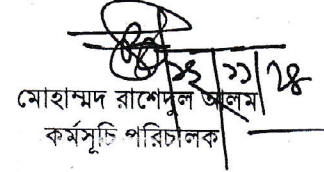 ১২/১১/২৪
মোহাম্মদ রাশেদুল আলম
কর্মসূচি পরিচালক